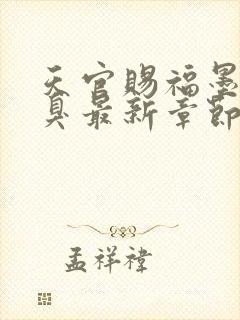 天官赐福墨
臭最新章節
孟祥禕